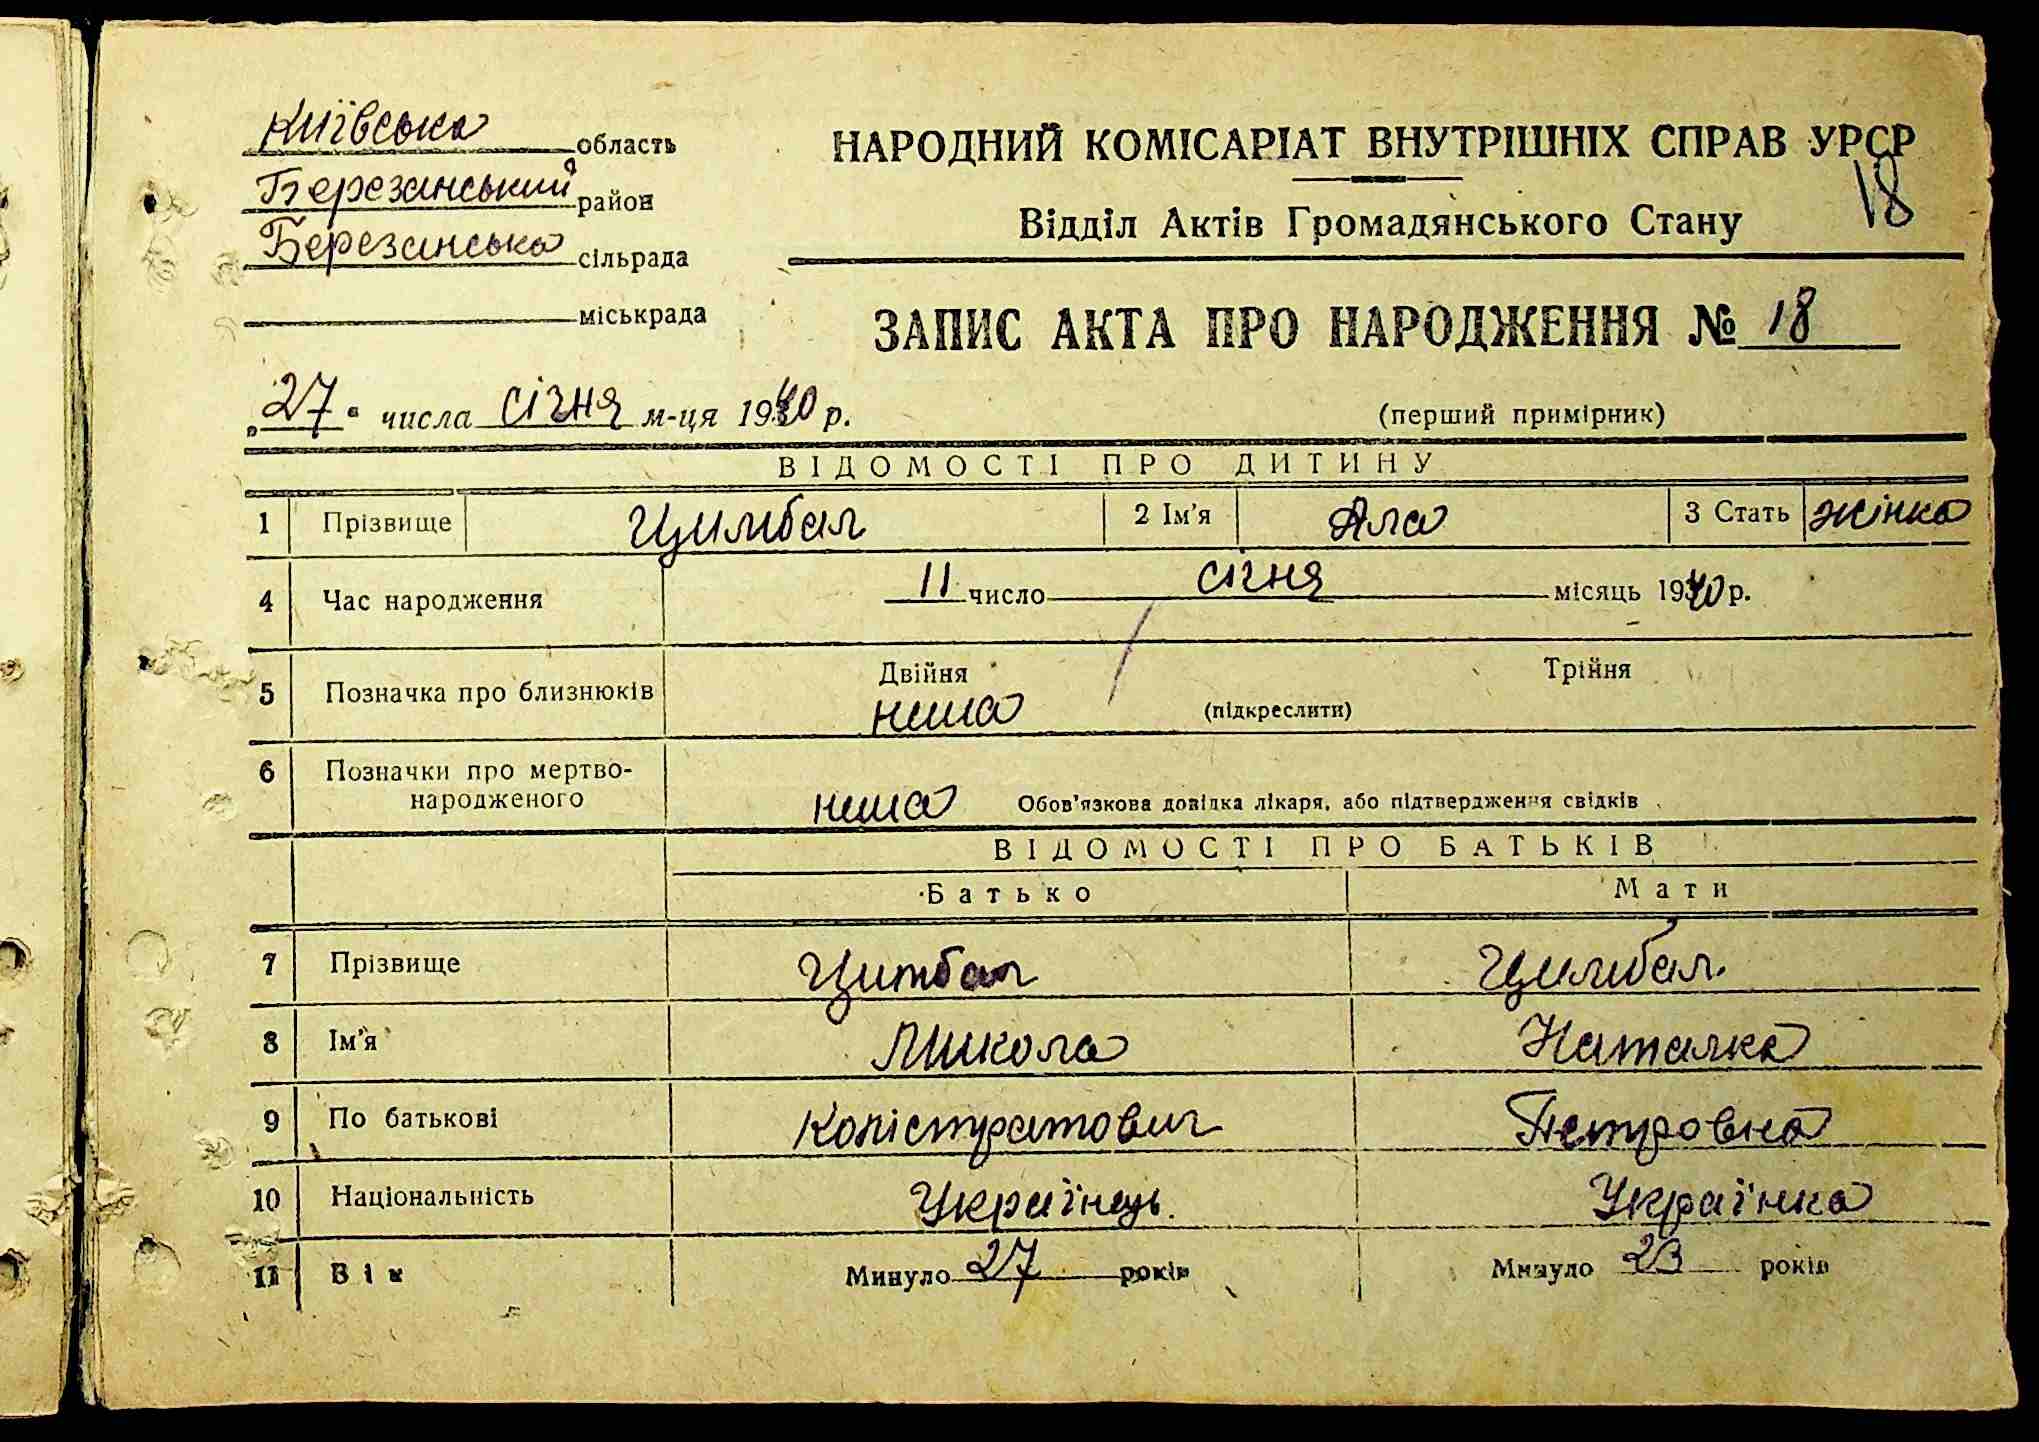 Київська область
Березанський район
Березанська сільрада
міськрада
НАРОДНИЙ КОМІСАРІАТ ВНУТРІШНІХ СПРАВ УРСР
18
Відділ Актів Громадянського Стану
ЗАПИС АКТА ПРО НАРОДЖЕННЯ № 18
„27" числа січня м-ця 1940 р.
(перший примірник)
ВІДОМОСТІ ПРО ДИТИНУ
1 Прізвище Цимбал 2 Ім'я Ала 3 Стать жінка
4 Час народження 11 число січня місяць 1940 р.
5 Позначка про близнюків Двійня Трійня
нема (підкреслити)
6 Позначки про мертво-
народженого нема Обов'язкова довідка лікаря, або підтвердження свідків
ВІДОМОСТІ ПРО БАТЬКІВ
Батько Мати
7 Прізвище Цимбал Цимбал
8 Ім'я Микола Наталка
9 По батькові Копістратович Петровна
10 Національність Українець Українка
11 Вік Минуло 27 років Минуло 23 років